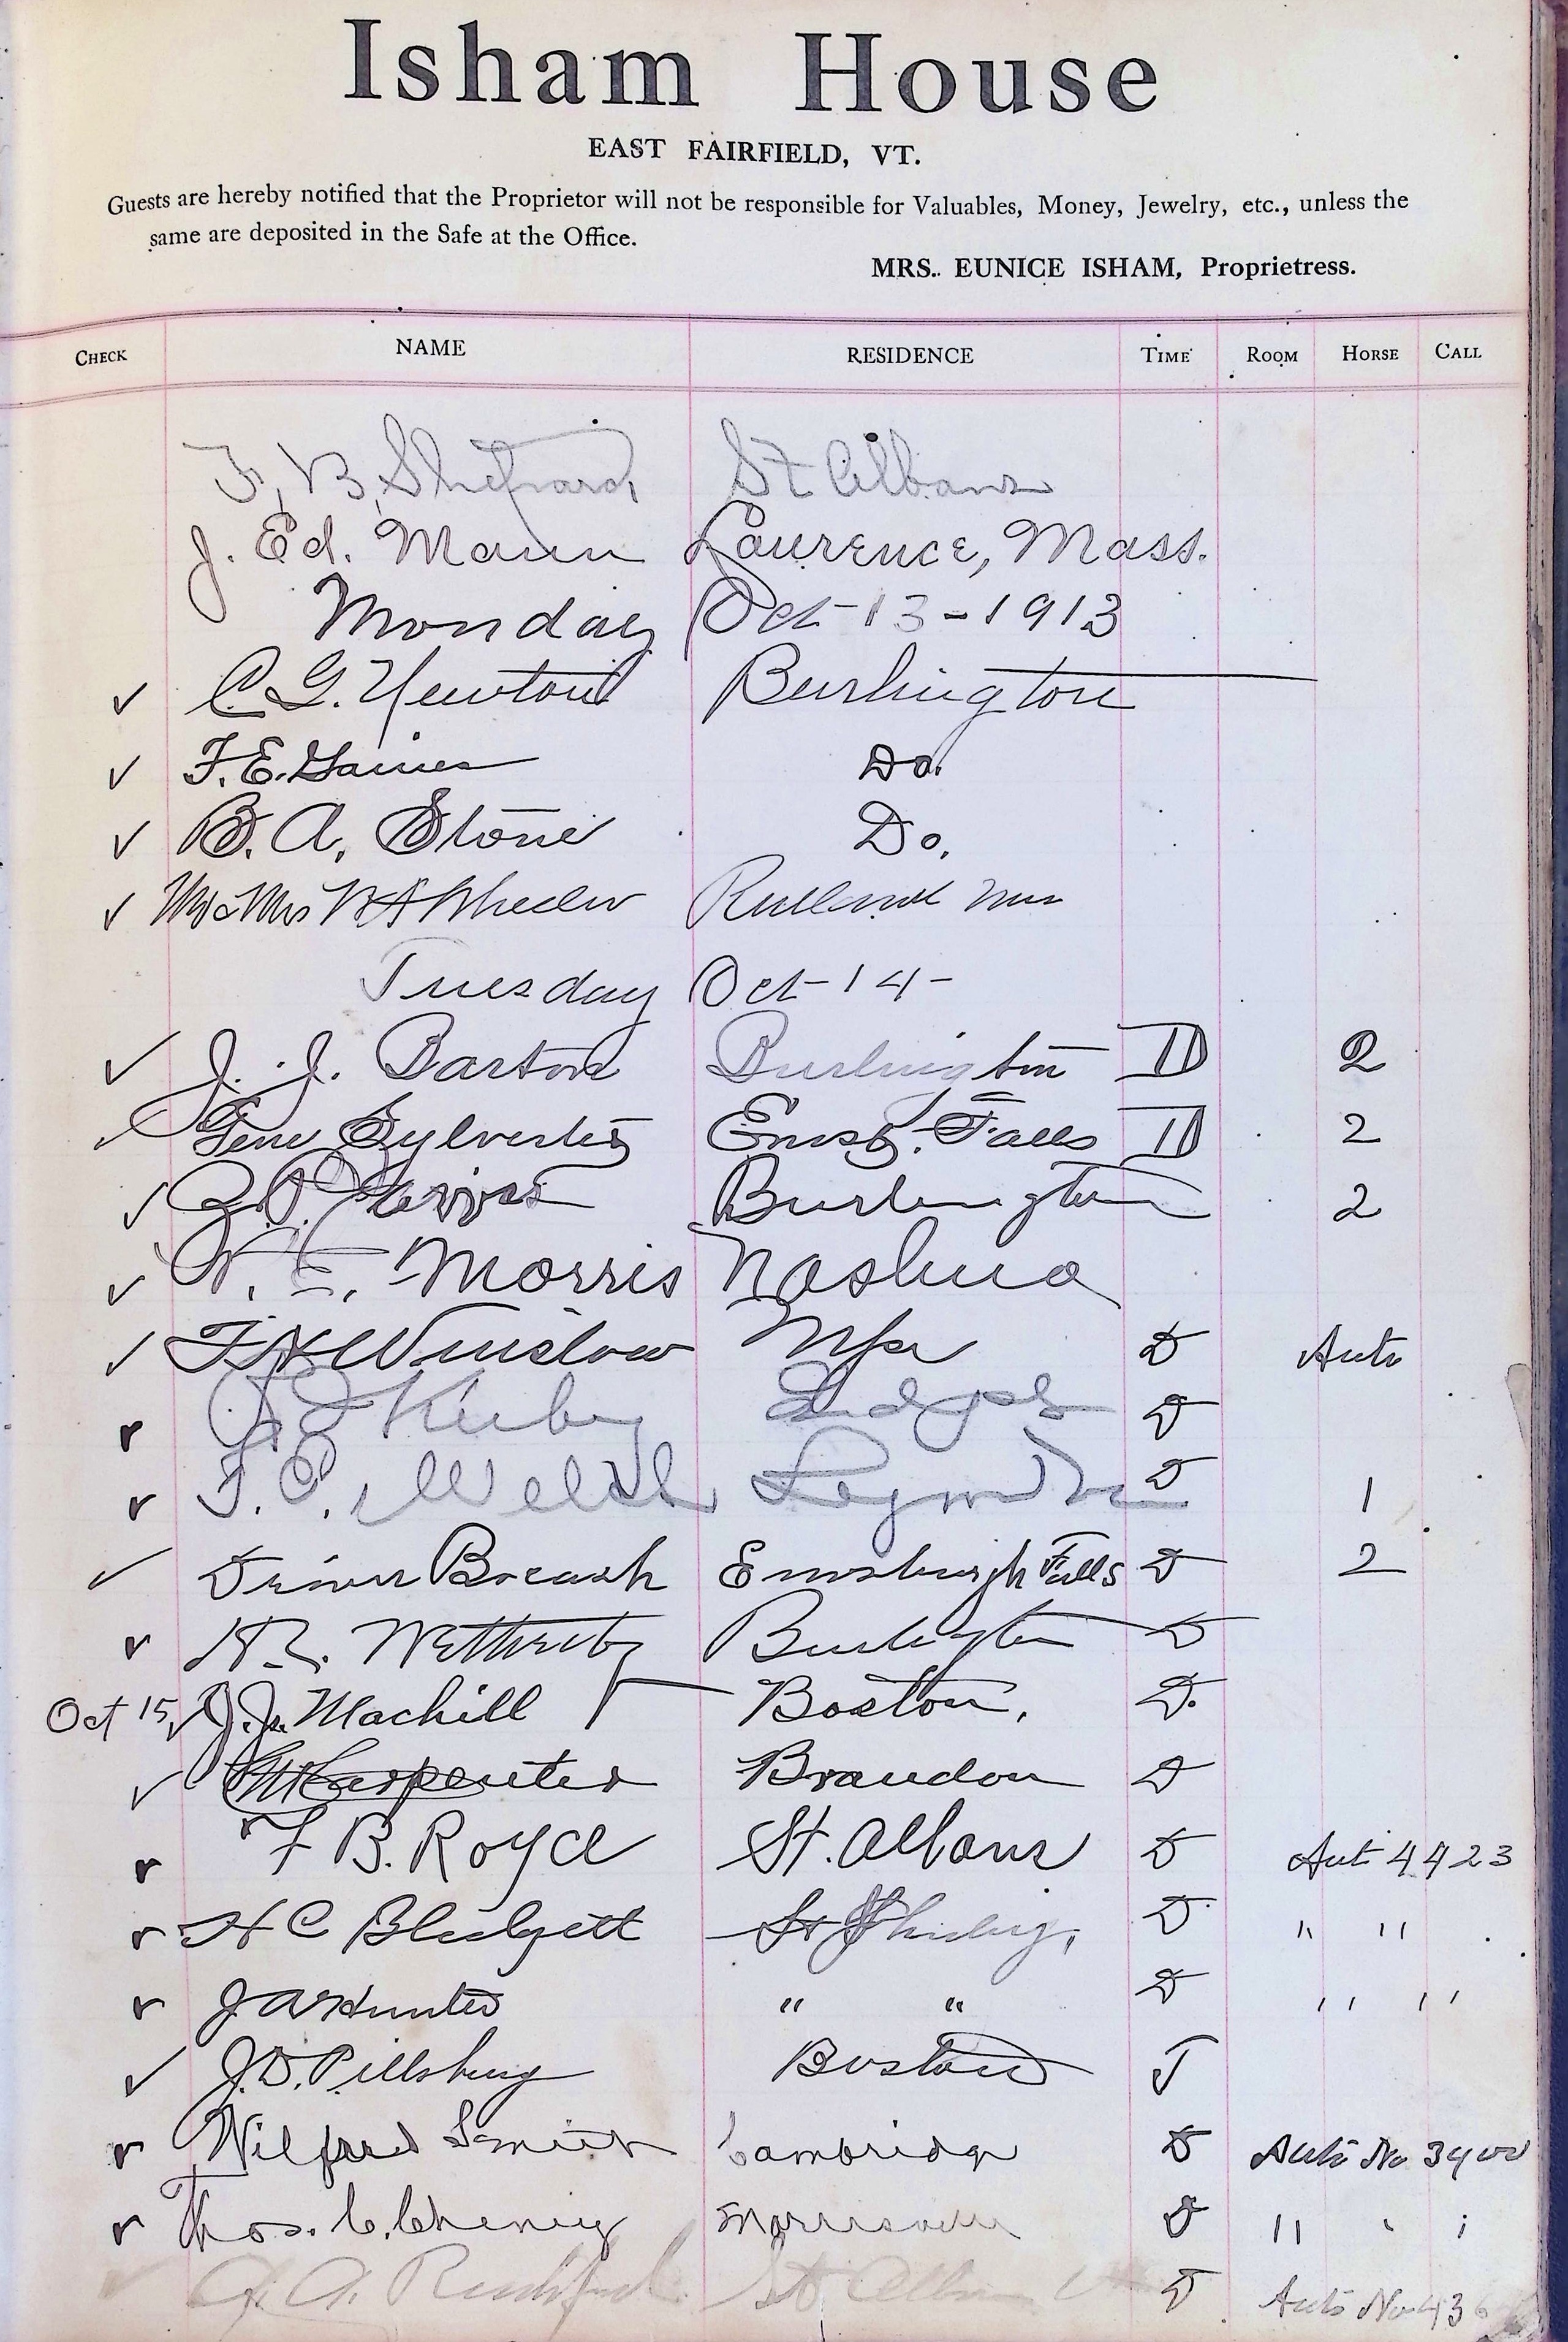 Isham House
EAST FAIRFIELD, VT.
Guests are hereby notified that the Proprietor will not be responsible for Valuables, Money, Jewelry, etc., unless the
same are deposited in the Safe at the Office.
MRS. EUNICE ISHAM, Proprietress.
CHECK NAME RESIDENCE TIME ROOM HORSE CALL
F, B, Shepard, St Albans
J. Ed. Mann Lawrence, Mass.
Monday Oct-13-1913
✓ C. G. Newton Burlington
✓ F. E. Gaines Do.
✓ B. A. Stone Do.
✓ Mr & Mrs Wheeler Rutland
Tuesday Oct-14-
✓ J. J. Barton Burlington D 2
✓ Gene Sylvester Enosb. Falls D 2
✓ Burlington 2
✓ W. E. Morris Nashua
✓ Winslow D Auto
✓ Kirby D
✓ F. C. Welch D 1
✓ Driver Breach Enosburgh Falls D 2
✓ Wetherby Burlington D
Oct 15, ✓ J. J. Machill Boston, D.
✓ Carpenter Brandon D
✓ F B. Royce St. Albans D Aut 4423
✓ H C Blodgett St D " "
✓ J A Hunter " " D " "
✓ J. D. Pillsbury Boston T
✓ Wilfred Smith Cambridge D Auto No
✓ Thos. C. Cheney Morrisville D "
✓ A. St Albans D Auto No 436